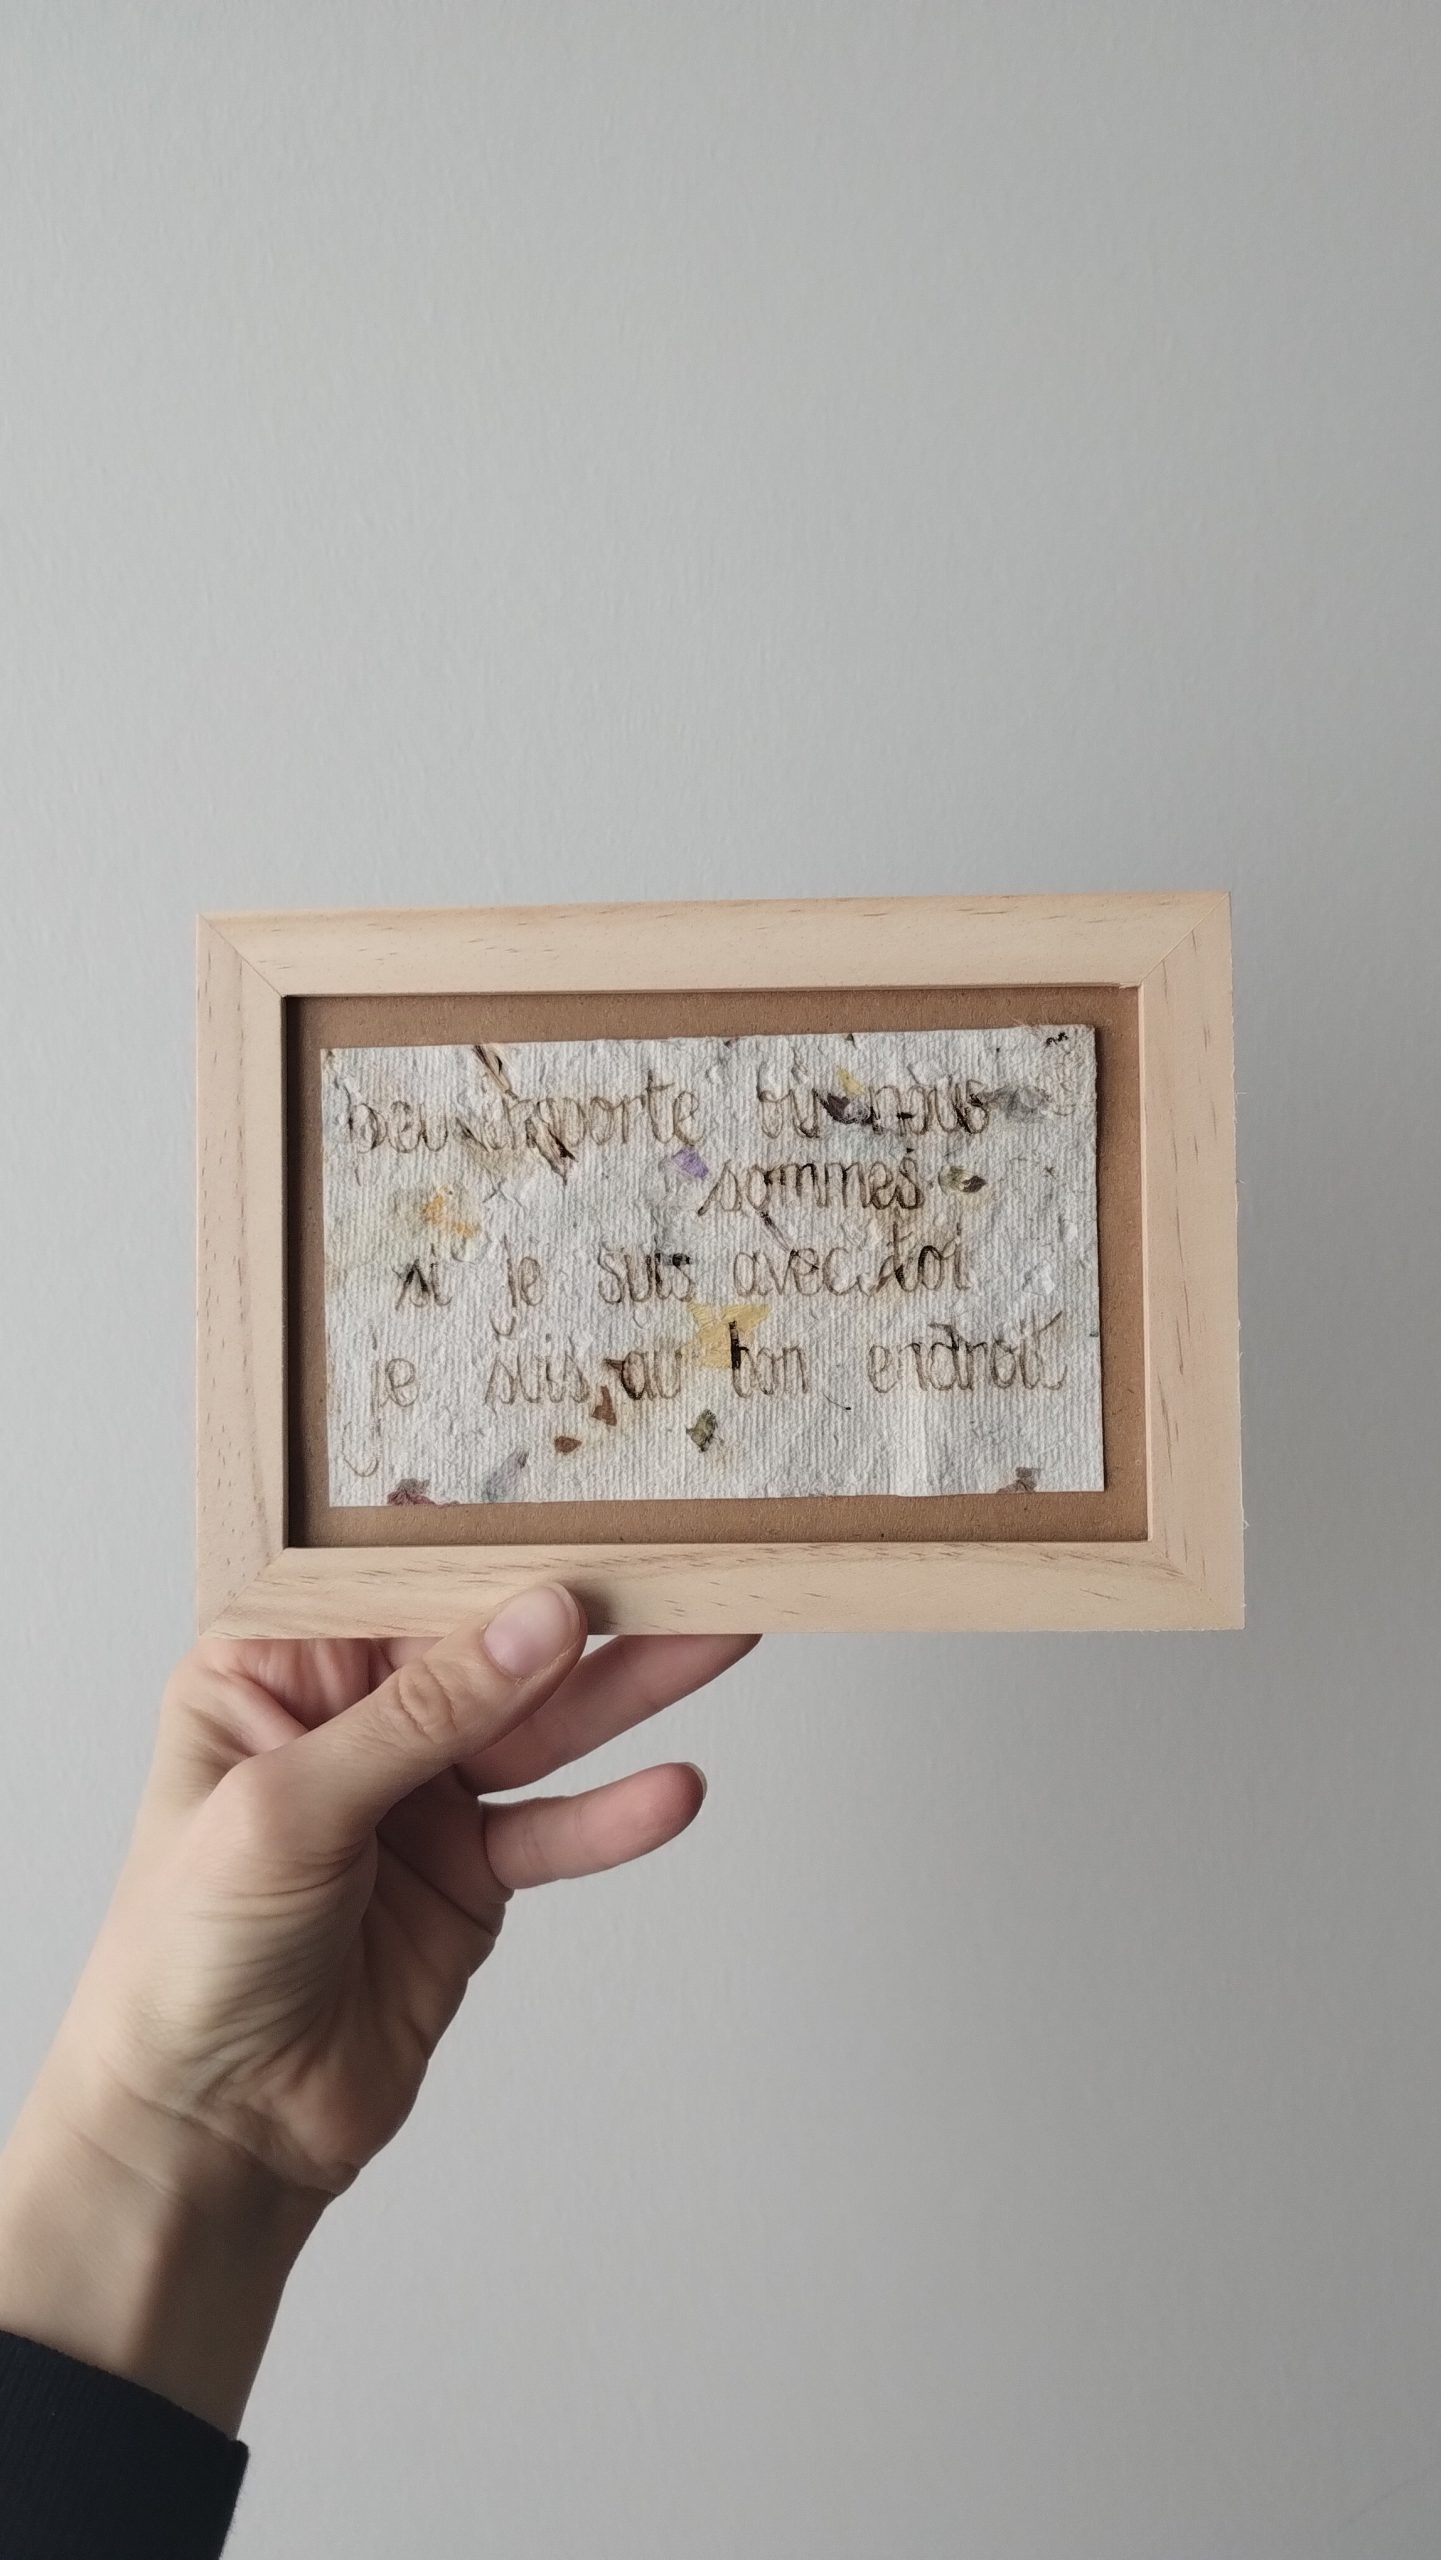 peu importe où nous
sommes
si je suis avec toi
je suis au bon endroit